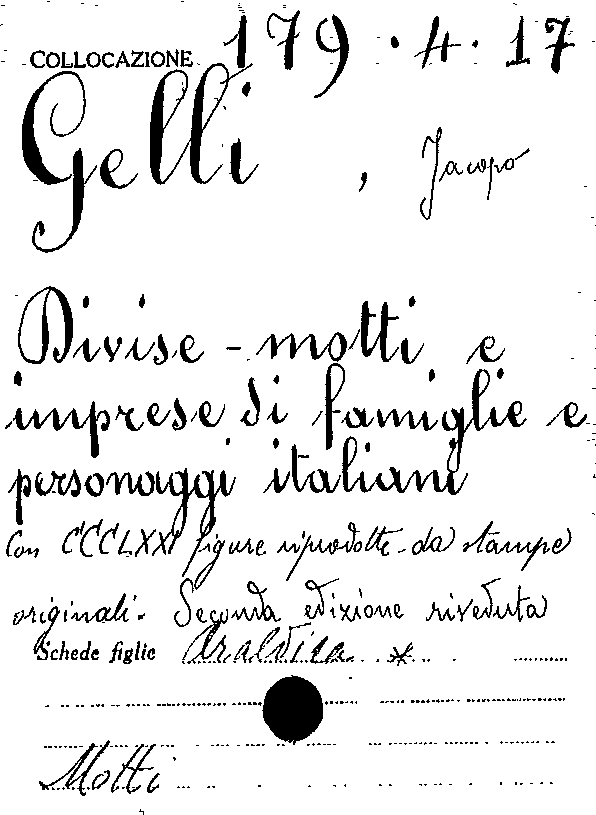 COLLOCAZIONE 179.4.17
Gelli, Jacopo
Divise - motti e
imprese di famiglie e
personaggi italiani
Con CCCLXXI figure riprodotte da stampe
originali. Seconda edizione riveduta
Schede figlie Araldica *
Motti